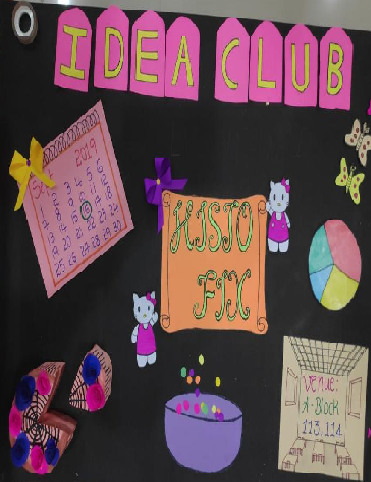 IDEA CLUB
2019
HISTO
FIX
Venue:
A-Block
113, 114